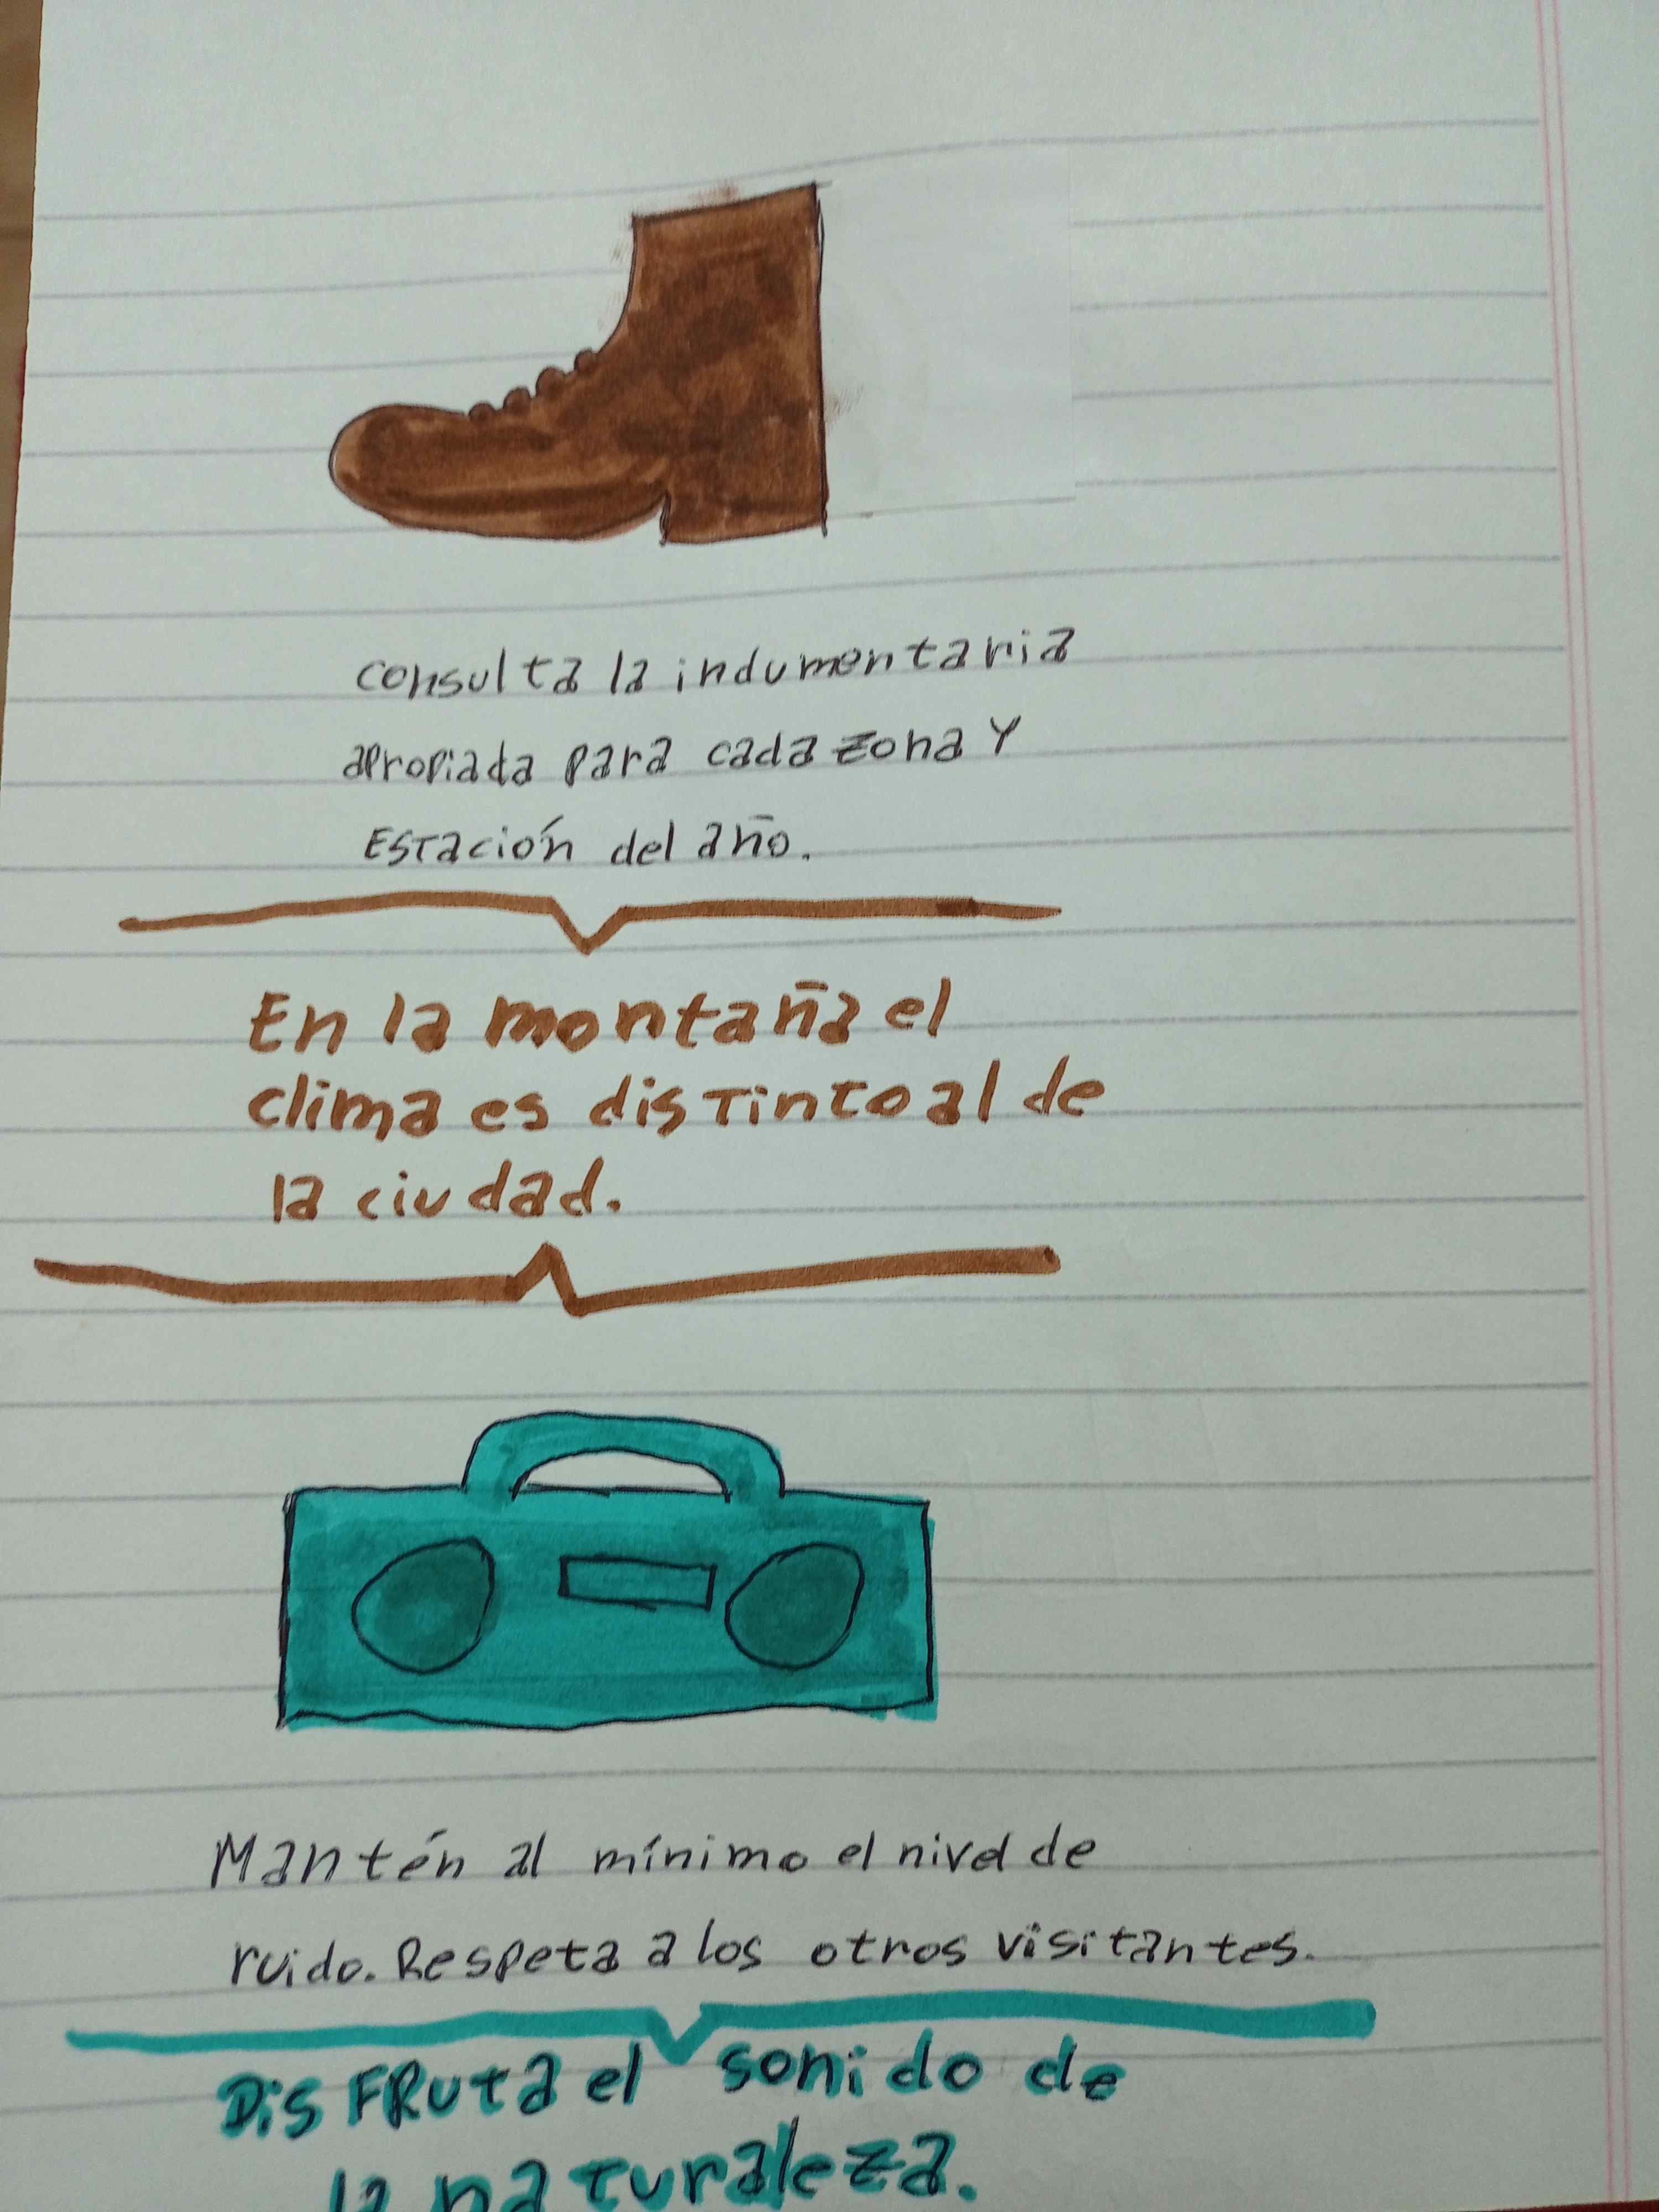 consulta la indumentaria
apropiada para cada zona y
Estación del año.
En la montaña el
clima es distinto al de
la ciudad.
Mantén al mínimo el nivel de
ruido. Respeta a los otros visitantes.
Disfruta el sonido de
la naturaleza.